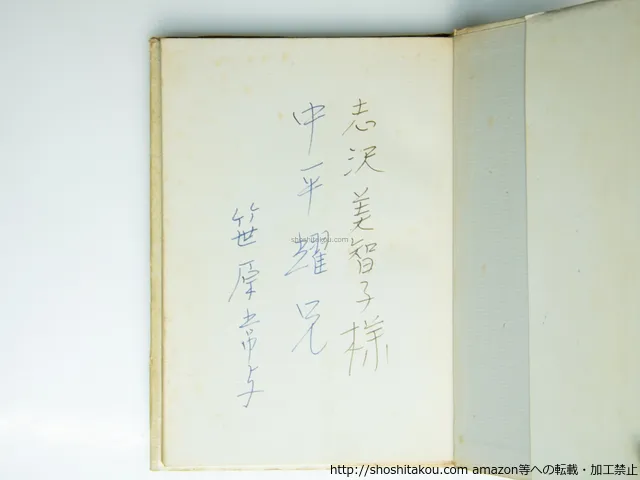 志沢美智子様
中平耀兄
笹原常与
shoshitakou.com
http://shoshitakou.com amazon等への転載・加工禁止